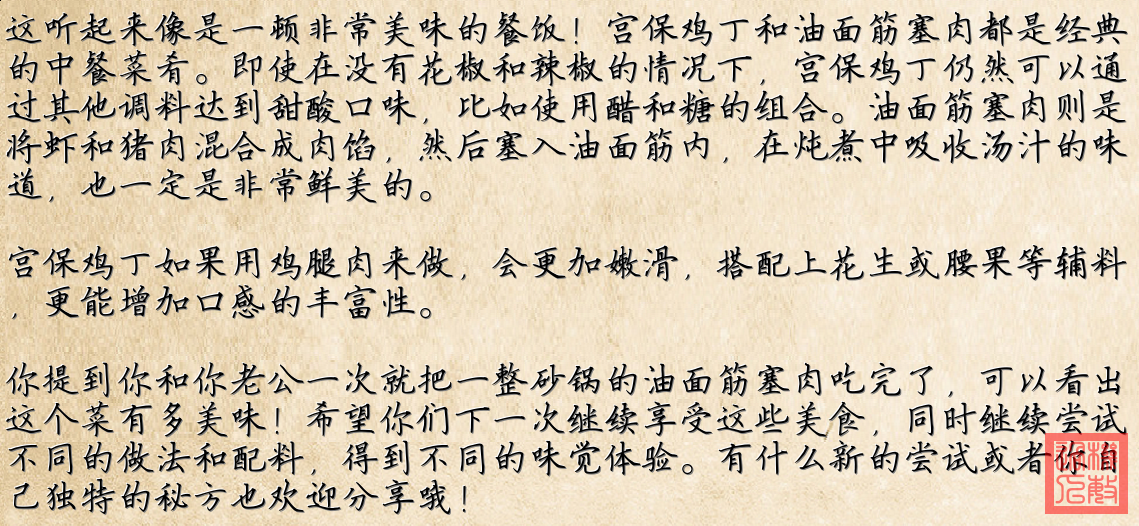 这听起来像是一顿非常美味的餐饭！宫保鸡丁和油面筋塞肉都是经典
的中餐菜肴。即使在没有花椒和辣椒的情况下，宫保鸡丁仍然可以通
过其他调料达到甜酸口味，比如使用醋和糖的组合。油面筋塞肉则是
将虾和猪肉混合成肉馅，然后塞入油面筋内，在炖煮中吸收汤汁的味
道，也一定是非常鲜美的。
宫保鸡丁如果用鸡腿肉来做，会更加嫩滑，搭配上花生或腰果等辅料
，更能增加口感的丰富性。
你提到你和你老公一次就把一整砂锅的油面筋塞肉吃完了，可以看出
这个菜有多美味！希望你们下一次继续享受这些美食，同时继续尝试
不同的做法和配料，得到不同的味觉体验。有什么新的尝试或者你自
己独特的秘方也欢迎分享哦！